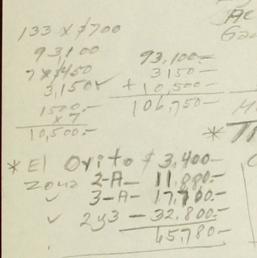 133 x $700
93,100
7 x $450
3,150
1500.-
x 7
10,500.-
93,100.-
3150-
+ 10,500-
106,750-
* El Orito $ 3,400-
zona 2-A- 11,880.-
3-A- 17,700.-
2y3 - 32.800.-
65,780-
*